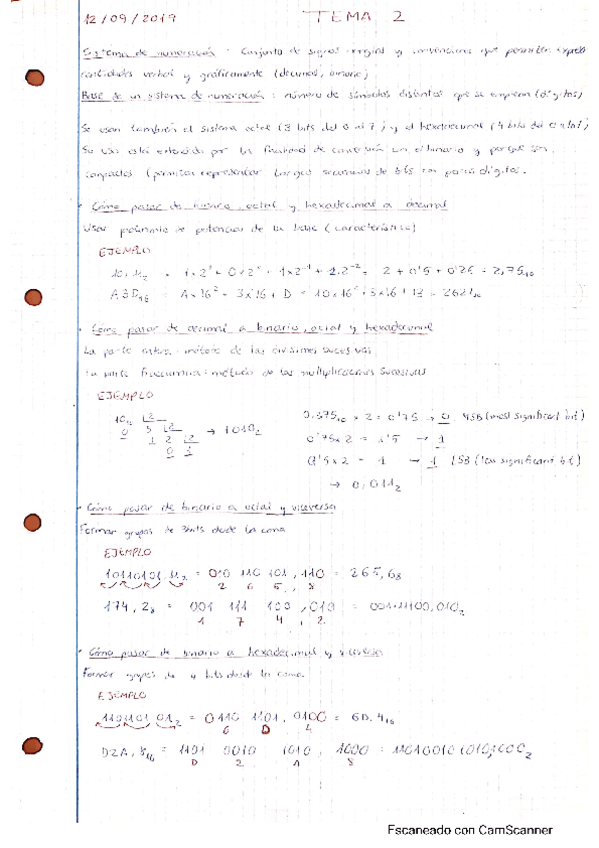 12/09/2019 TEMA 2
Sistema de numeración: Conjunto de signos, reglas y convenciones que permiten expresar
cantidades verbal y gráficamente (decimal, binario)
Base de un sistema de numeración: número de símbolos distintos que se emplean (dígitos)
Se usan también el sistema octal (3 bits del 0 al 7) y el hexadecimal (4 bits del
Su uso está extendido por la facilidad de conversión en binario y porque son
compactos (permiten representar largas secuencias de bits con pocos dígitos.
· Cómo pasar de binario, octal y hexadecimal a decimal
Usar polinomio de potencias de la base (característico)
EJEMPLO
= 2 + 0'5 + 0'25 = 2,75₁₀
A3D₁₆ = A×16² + 3×16 + D = 10×16² + 3×16 + 13 = 2621₁₀
· Cómo pasar de decimal a binario, octal y hexadecimal
La parte entera: método de las divisiones sucesivas
La parte fraccionaria: método de las multiplicaciones sucesivas
EJEMPLO
10₁₀ |2 → 1010₂
0 5 |2
1 2 |2
0 1
0.375₁₀ × 2 = 0'75 → 0 MSB (most significant bit)
0'75×2 = 1'5 → 1
0'5×2 = 1 → 1 LSB (less significant bit)
→ 0,011₂
· Cómo pasar de binario a octal y viceversa
Formar grupos de 3 bits desde la coma
EJEMPLO
10110101,11₂ = 010 110 101 , 110 = 265,6₈
2 6 5,
174,2₈ = 001 111 100 ,010 = 001111100,010₂
1 7 4 , 2
· Cómo pasar de binario a hexadecimal y viceversa
Formar grupos de 4 bits desde la coma.
EJEMPLO
1101101,01₂ = 0110 1101, 0100 = 6D,4₁₆
6 D 4
D2A,8₁₆ = 1101 0010 1010, 1000 = 110100101010,1000₂
D 2 A 8
Escaneado con CamScanner